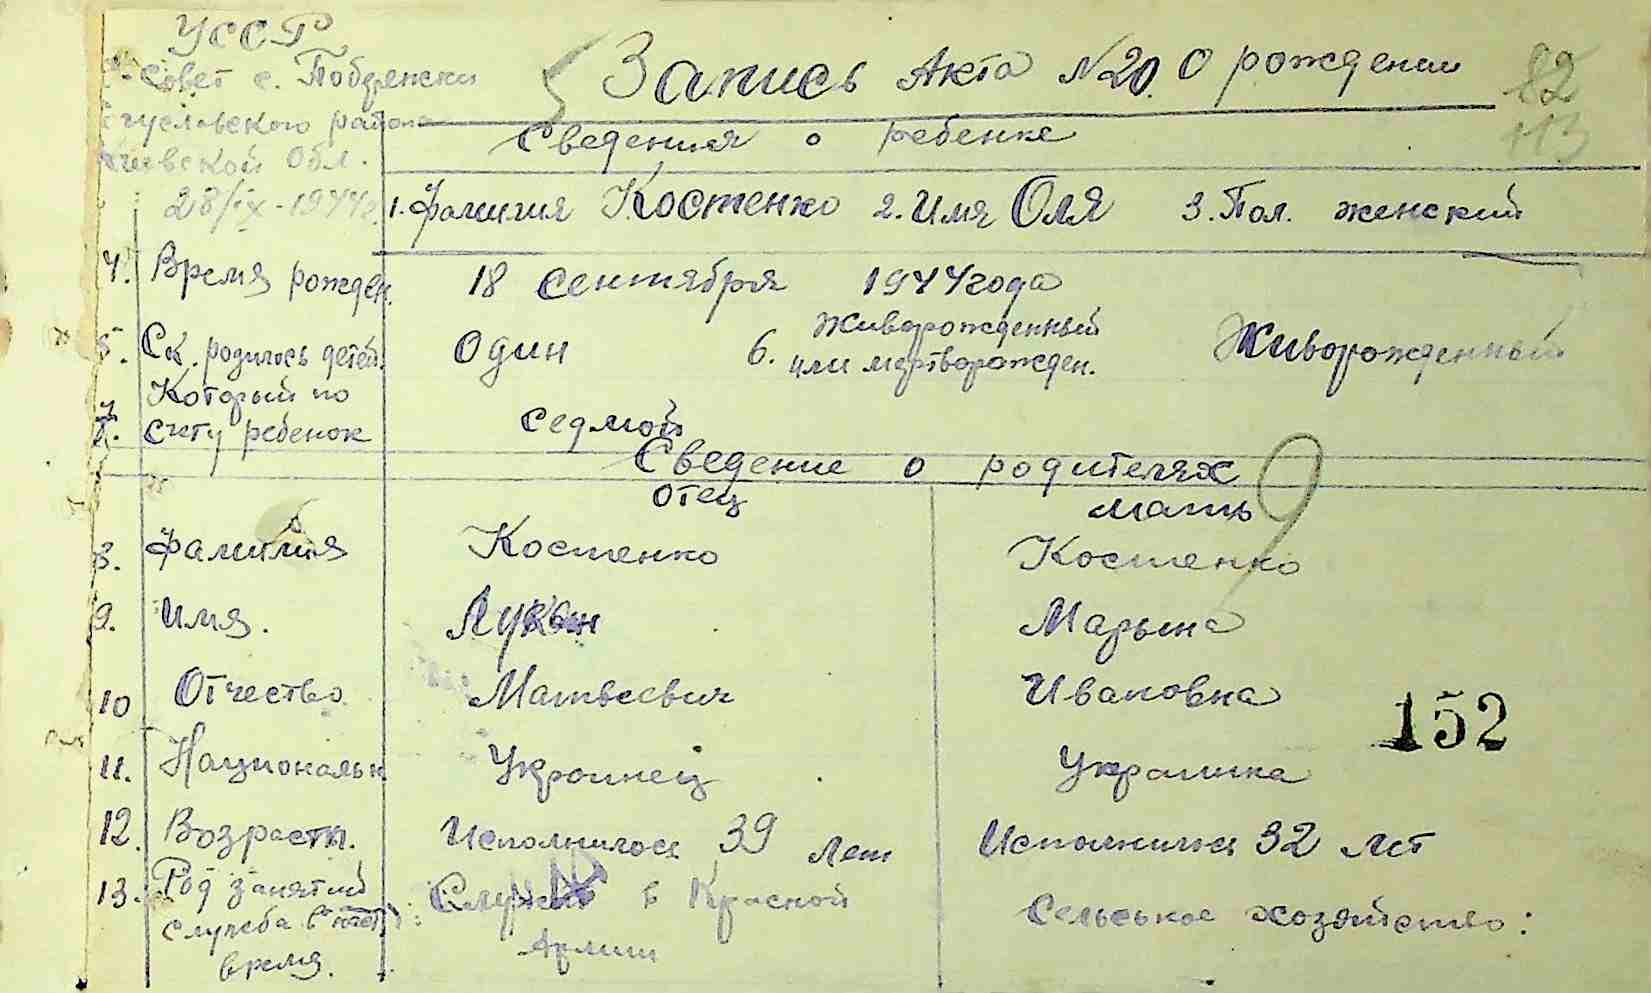 УССР
Совет с. Побережки
гуславского района
Киевской Обл.
28/IX-1944г.
Запись Акта №20. О рождении
82
113
Сведения о ребенке
1. Фамилия Костенко 2. Имя Оля 3. Пол. женский
4. Время рожден. 18 сентября 1944 года
5. Ск. родилось детей. Один 6. Живорожденный или мертворожден. Живорожденный
7. Который по
счету ребенок седмой
Сведение о родителях
отец мать
8. Фамилия Костенко Костенко
9. Имя. Лукян Марьяна
10 Отчество Матвеевич Ивановна
152
11. Национальн Украинец Украинка
12. Возрасть. Исполнилось 39 лет Исполнилось 32 лет
13. Род занятий
служба в наст.
время. Служит в Красной
Армии Сельское хозяйство: